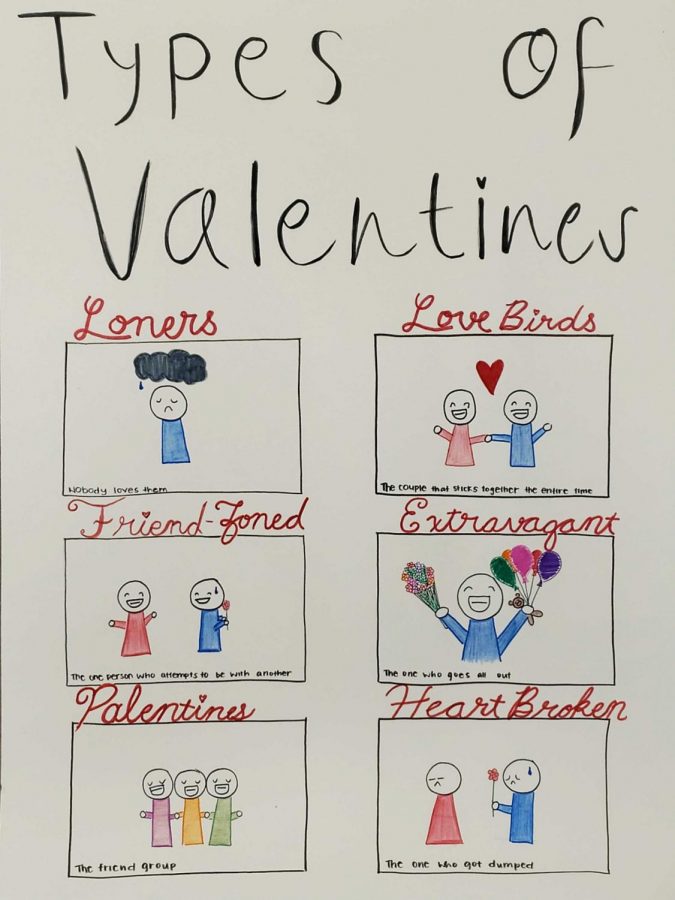 Types of
Valentines
Loners
Nobody loves them
Love Birds
The couple that sticks together the entire time
Friend-Zoned
The one person who attempts to be with another
Extravagant
The one who goes all out
Palentines
The friend group
Heart Broken
The one who got dumped